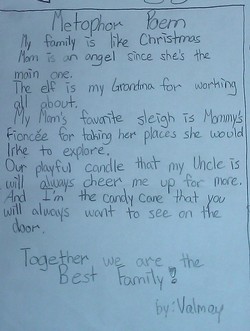 Metophor Poem
My family is like Christmas
Mom is an angel since she's the
main one.
The elf is my Grandma for working
all about.
My Mom's favorite sleigh is Mommy's
fioncée for taking her places she would
like to explore.
Our playful candle that my Uncle is
will always cheer me up for more.
And I'm the candy cane that you
will always want to see on the
door.
Together we are the
Best Family!
by: Valmay